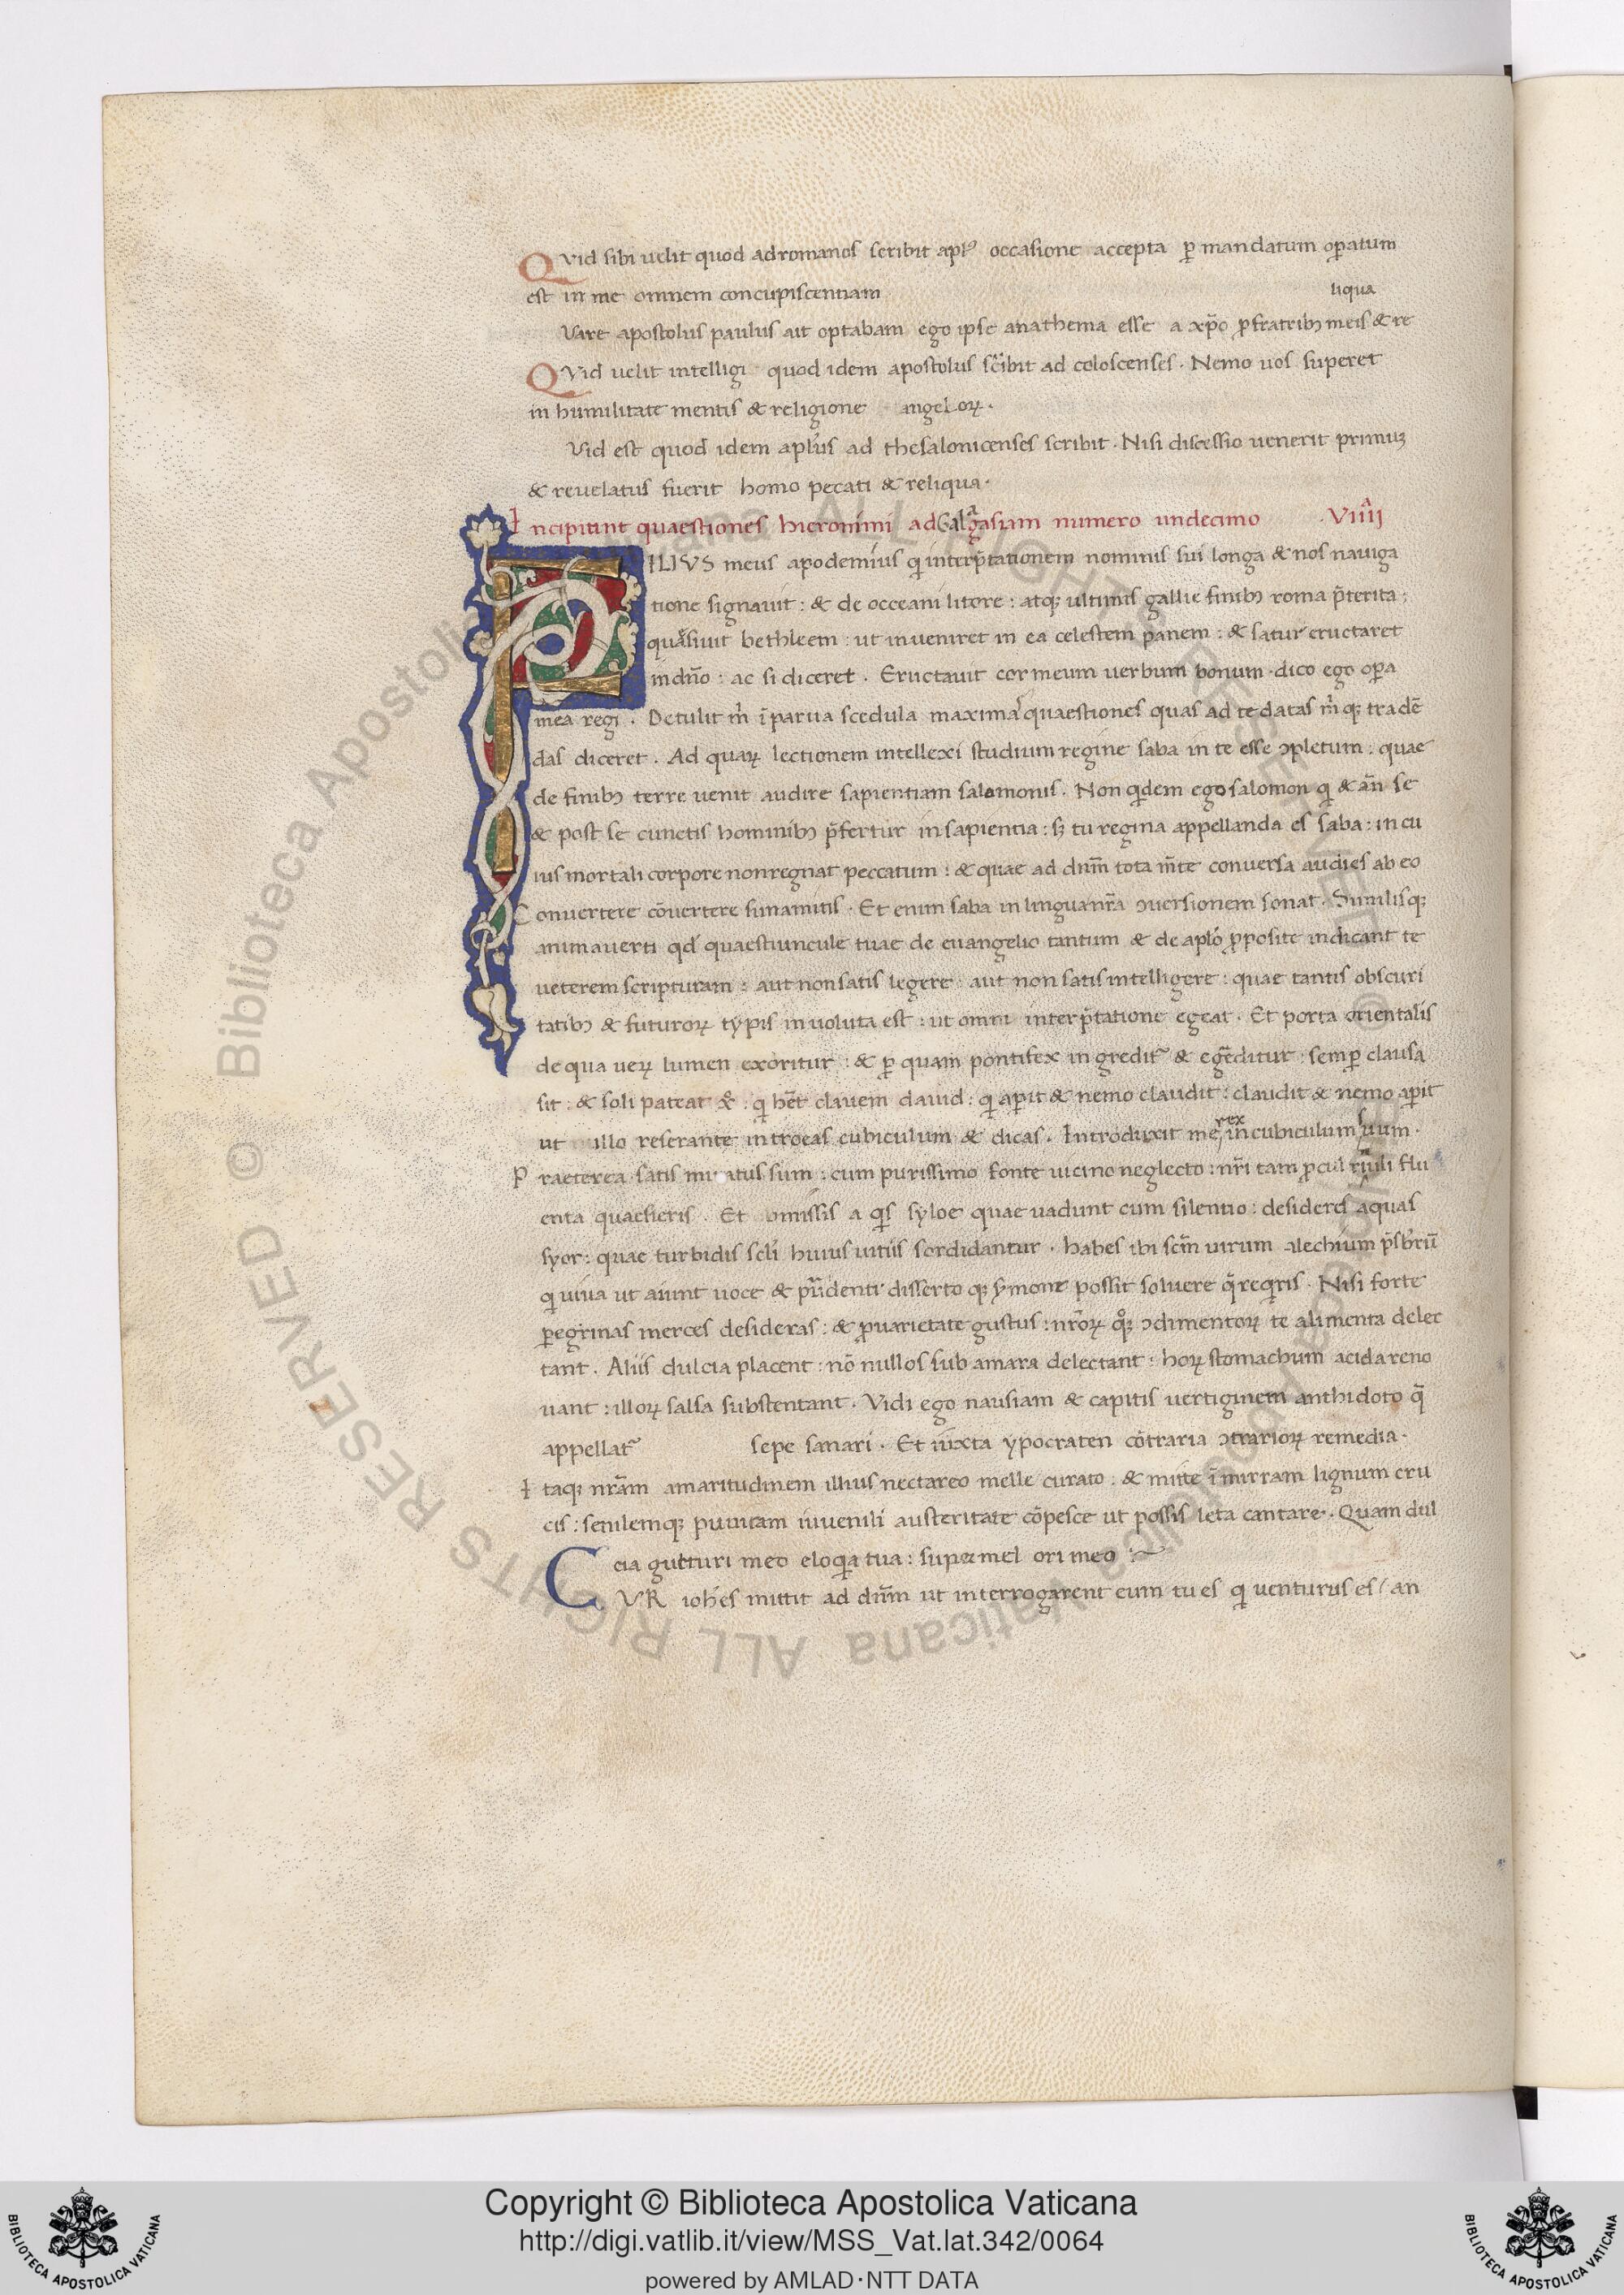 Qvid sibi uelit quod ad romanos scribit apl's occasione accepta ꝑ mandatum oꝑatum
est in me omnem concupiscentiam
liqua
Vare apostolus paulus ait optabam ego ipse anathema esse a xp̄o ꝓ fratribꝫ meis & re
QVid uelit intelligi quod idem apostolus sc̄ibit ad coloscenses . Nemo uos superet
in humilitate mentis & religione angeloꝝ .
Vid est quod idem apl'us ad thesalonicenses scribit . Nisi discessio uenerit primuꝫ
& reuelatus fuerit homo pecati & reliqua .
Incipiunt quaestiones hieronimi ad Galagasiam numero undecimo . Viiii
FILIVS meus apodemius qi interp̄tationem nominis sui longa & nos nauiga
tione signauit : & de occeani litore : atqꝫ ultimis gallie finibꝫ roma p̄terita :
quäsiuit bethleem : ut inueniret in ea celestem panem : & satur eructaret
in dn̄o : ac si diceret . Eructauit cor meum uerbum bonum . dico ego oꝑa
mea regi . Detulit m̄ ī parua scedula maxima quaestiones quas ad te datas m̄ qꝫ tradē
das diceret . Ad quaꝝ lectionem intellexi studium regine saba in te esse ↄpletum : quae
de finibꝫ terre uenit audire sapientiam salomonis . Non qidem ego salomon qi & ān se
& post se cunctis hominibꝫ p̄fertur in sapientia : sꝫ tu regina appellanda es saba : in cu
ius mortali corpore non regnat peccatum : & quae ad dnm̄ tota m̄te conuersa audies ab eo
Conuertere cōuertere sunamitis . Et enim saba in lingua nr̄a ↄuersionem sonat . Similisqꝫ
animauerti qd' quaestiuncule tuae de euangelio tantum & de aplo' ꝓposite indicant te
ueterem scripturam : aut non satis legere : aut non satis intelligere : quae tantis obscuri
tatibꝫ & futuroꝝ typis inuoluta est : ut omni interp̄tatione egeat . Et porta orientalis
de qua ueꝝ lumen exoritur : & ꝑ quam pontifex ingredit' & eḡeditur : semꝑ clausa
sit : & soli pateat : qi hēt clauem dauid : qi aꝑit & nemo claudit : claudit & nemo aꝑit
ut illo reserante introeas cubiculum & dicas . Introduxit me rex in cubiculum suum .
Praeterea satis mi atus sum : cum purissimo fonte uicino neglecto : nr̄i tam ꝓcul riuuli flu
enta quaesieris . Et omissis a qis syloe quae uadunt cum silentio : desideres aquas
syor : quae turbidis sc̄li huius uitiis sordidantur . habes ibi sc̄m uirum alechium p̄sb'rū
qi uiua ut aiunt uoce & prudenti disserto qꝫ s'mone possit soluere q̄ reqiris . Nisi forte
ꝑegrinas merces desideras : & ꝓ uarietate gustus : nr̄oꝝ qoqꝫ ↄdimentoꝝ te alimenta delec
tant . Aliis dulcia placent : nō nullos sub amara delectant : hoꝝ stomachum acida reno
uant : illoꝝ salsa substentant . Vidi ego nausiam & capitis uertiginem anthidoto q̄
appellat' sepe sanari . Et iuxta ypocraten cōtraria ↄtrarioꝝ remedia .
Itaqꝫ nr̄am amaritudinem illius nectareo melle curato : & mitte ī mirram lignum cru
cis : senilemqꝫ puuitam iuuenili austeritate cōpesce ut possis leta cantare . Quam dul
cia gutturi meo eloqia tua : super mel ori meo :~
CVR ioh'es mittit ad dn̄m ut interrogarent eum tu es qi uenturus es / an
Copyright © Biblioteca Apostolica Vaticana
http://digi.vatlib.it/view/MSS_Vat.lat.342/0064
powered by AMLAD·NTT DATA
BIBLIOTECA APOSTOLICA VATICANA
BIBLIOTECA APOSTOLICA VATICANA
© Biblioteca Apostolica Vaticana ALL RIGHTS RESERVED